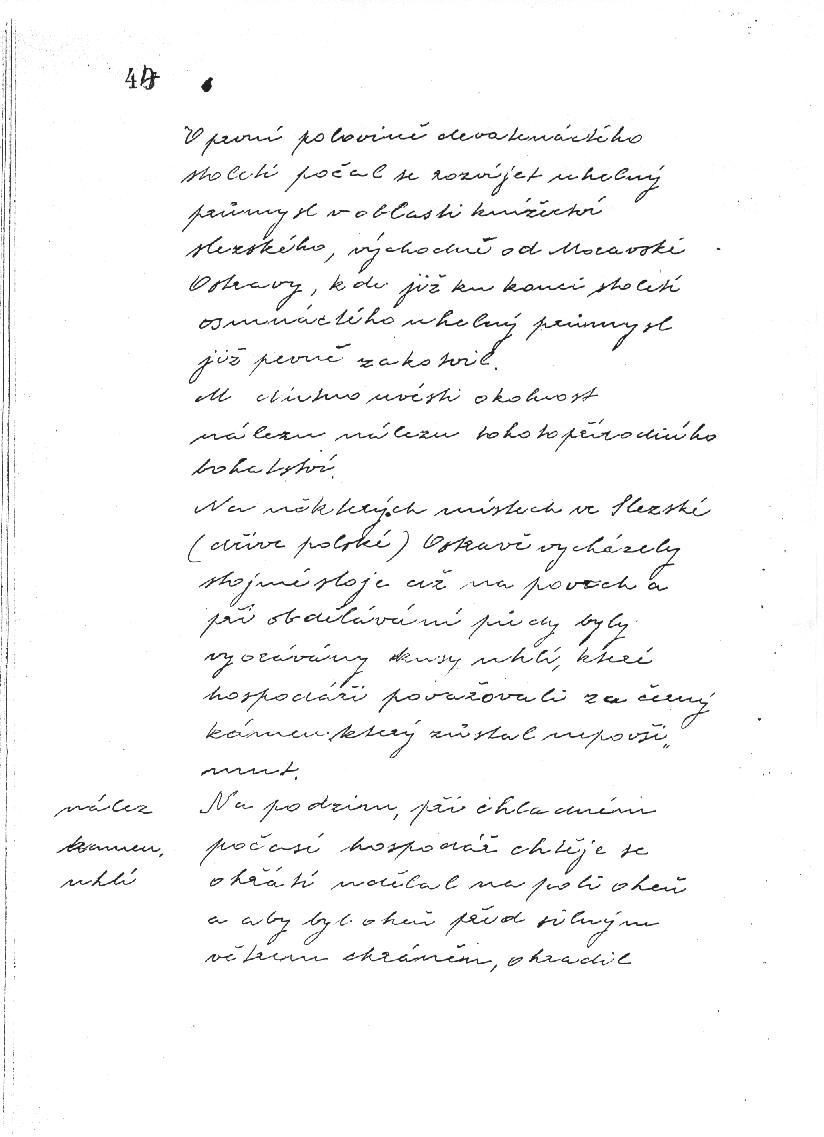 V první polovině devatenáctého
století počal se rozvíjet uhelný
průmysl v oblasti knížectví
slezského, východně od Moravské
Ostravy, kde již ku konci století
osmnáctého uhelný průmysl
již pevně zakotvil.
nutno uvésti okolnost
nálezu nálezu tohoto přírodního
bohatství.
Na některých místech ve Slezské
(dříve polské) Ostravě vycházely
stojmé sloje až na povrch a
při obdělávání půdy byly
vyorávány kusy uhlí, které
hospodáři považovali za černý
kámen který zůstal nepovši„
mnut.
nález
kamen.
uhlí
Na podzim, při chladném
počasí hospodář chtěje se
ohřáti udělal na poli oheň
a aby byl oheň před silným
větrem chráněn, ohradil